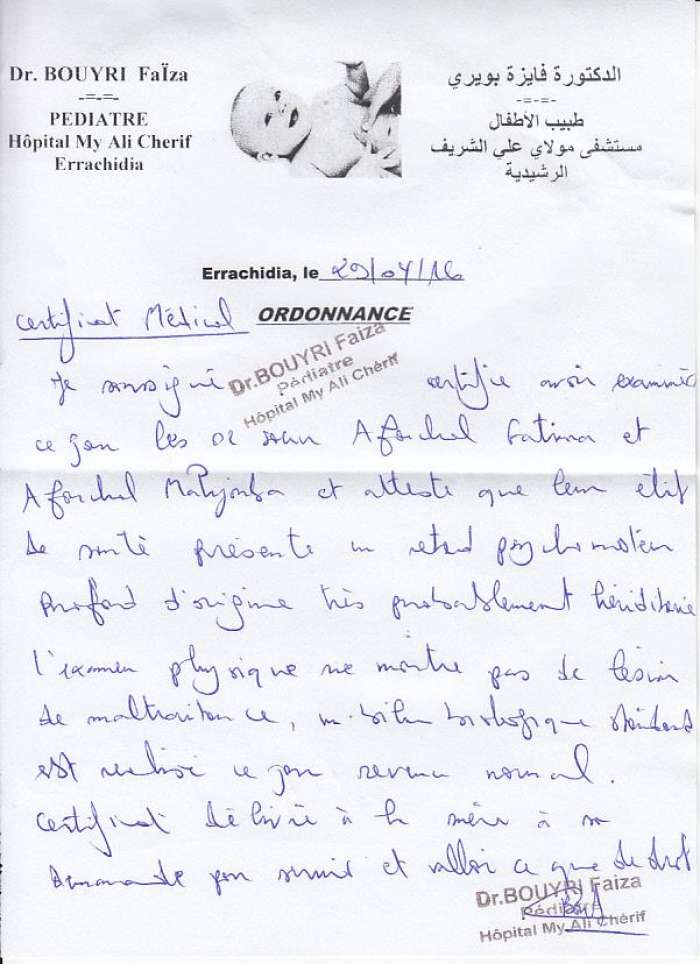 Dr. BOUYRI FaÏza
-=-=-
PEDIATRE
Hôpital My Ali Cherif
Errachidia
الدكتورة فايزة بويري
-=-=-
طبيب الأطفال
مستشفى مولاي علي الشريف
الرشيدية
Errachidia, le 29/04/16
Certificat Médical ORDONNANCE
Dr.BOUYRI Faiza
Pédiatre
Hôpital My Ali Chérif
Je soussigné certifie avoir examiné
ce jour les 02 sœurs Fatima et
et atteste que leur état
de santé présente un retard psychomoteur
profond d'origine très probablement héréditaire
l'examen physique ne montre pas de lésion
de maltraitance, un bilan biologique standard
est réalisé ce jour revenu normal.
Certificat délivré à la mère à sa
demande pour servir et valoir ce que de droit
Dr.BOUYRI Faiza
Pédiatre
Hôpital My Ali Chérif